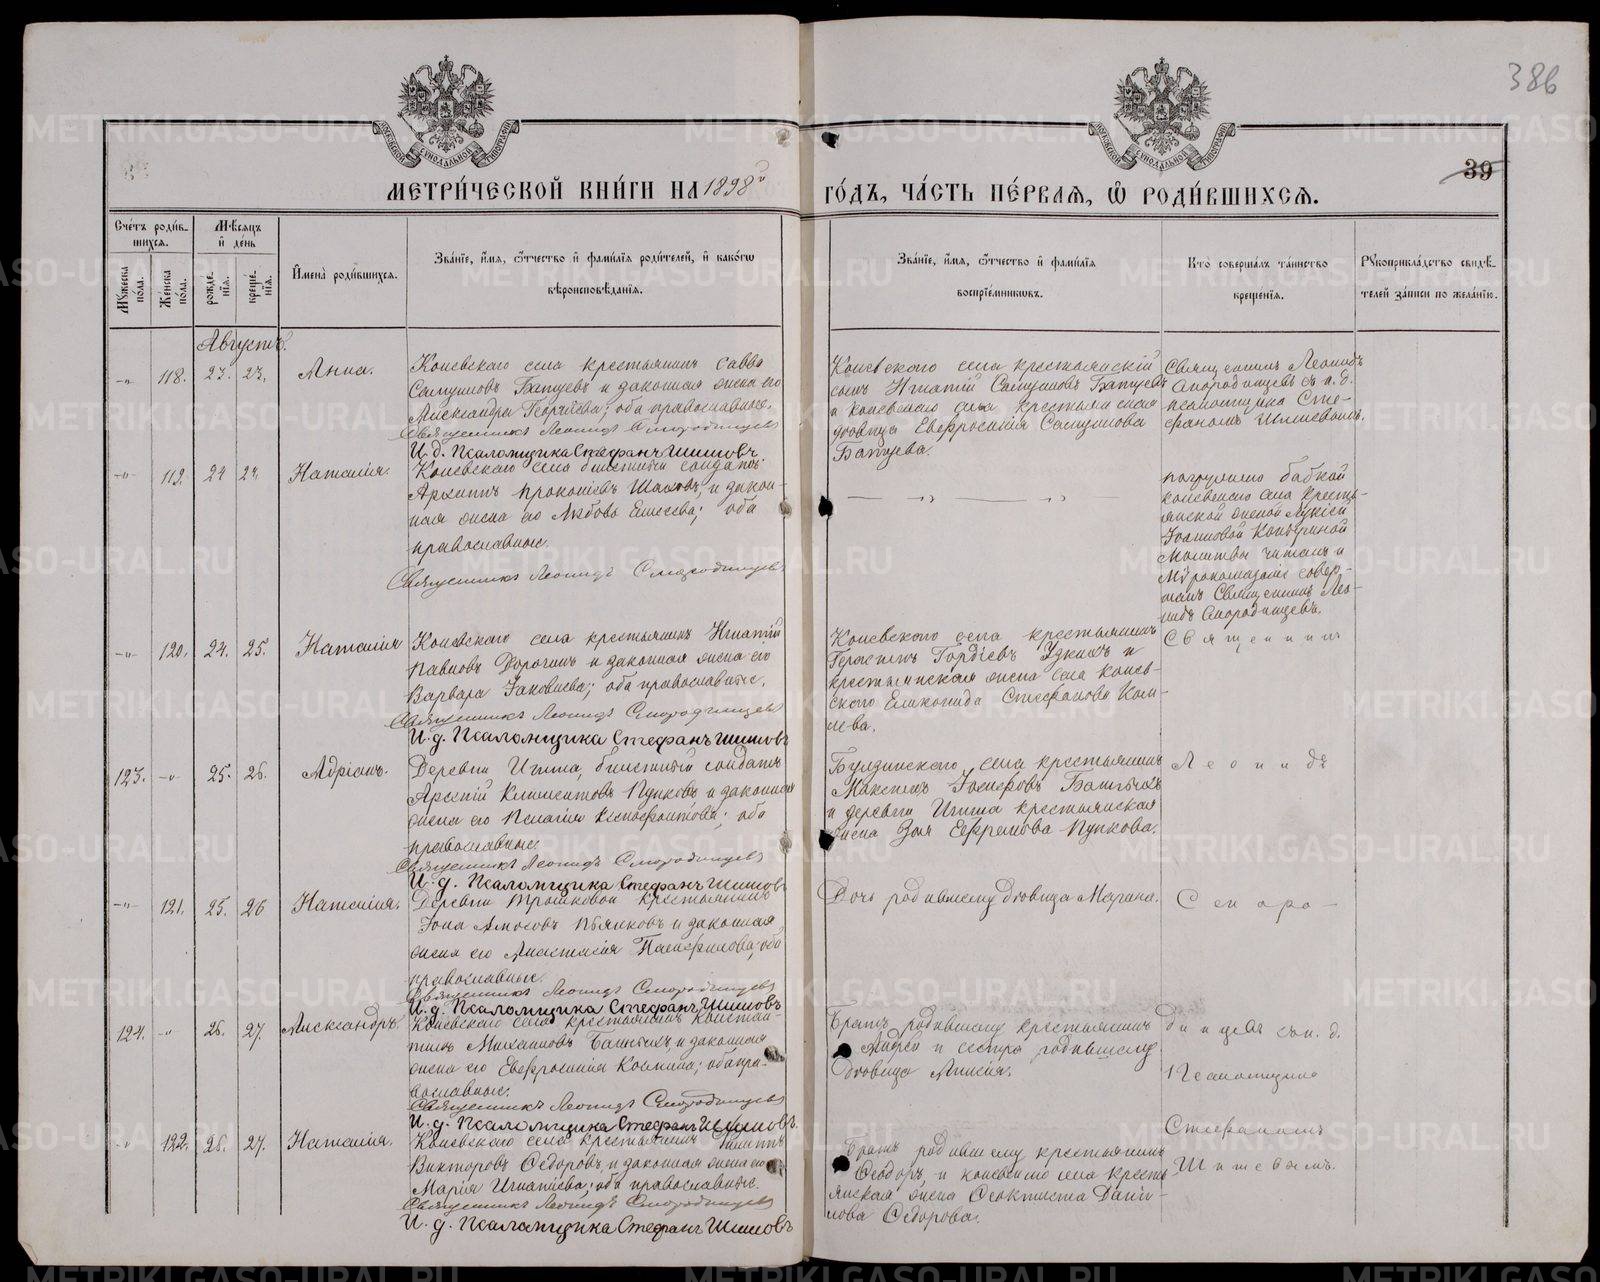 386
39
МЕТРИ́ЧЕСКОЙ КНИ́ГИ НА 1898й
ГО́ДЪ, ЧА́СТЬ ПЕ́РВАѦ, Ѡ҆ РОДИ́ВШИХСѦ.
Сче́тъ роди́в-
шихсѧ.
Мѣ́сяцъ
и҆ де́нь
Мꙋ́жеска
по́ла.
Же́нска
по́ла.
рожде́-
нїѧ.
креще́-
нїѧ.
И҆мена̀ роди́вшихсѧ.
Зва́нїе, и҆́мѧ, ѻ҆́тчество и҆ фами́лїѧ роди́телей, и҆ како́гѡ
вѣроисповѣ́данїѧ.
Зва́нїе, и҆́мѧ, ѻ҆́тчество и҆ фами́лїѧ
воспрїе́мникѡвъ.
Кто̀ соверша́лъ та́инство
креще́нїѧ.
Рꙋкоприкла́дство свидѣ́-
телей за́писи по жела́нїю.
Августъ.
118. 23. 23. Анна.
Коневского села крестьянинъ Савва
Самуиловъ Батуевъ и законная жена его
Александра Георгіева; оба православные.
Священникъ Леонидъ Смородинцевъ
И. д. Псаломщика Стефанъ Шишовъ.
Коневского села крестьянскій
сынъ Игнатій Самуиловъ Батуевъ
и Коневского села крестьянская
вдовица Евфросинія Самуилова
Батуева.
Священникъ Леонидъ
Смородинцевъ съ и. д.
псаломщика Сте-
фаномъ Шишовымъ.
119. 24 24. Наталія.
Коневского села билетный солдатъ
Архиппъ Прокопіевъ и закон-
ная жена его Любовь Елисеева; оба
православные.
Священникъ Леонидъ Смородинцевъ
погружено бабкой
Коневского села кресть-
янской женой
Молитвы читалъ и
Мѵропомазаніе совер-
шалъ Священникъ Лео-
нидъ Смородинцевъ.
120. 24. 25. Наталія
Коневского села крестьянинъ Игнатій
Павловъ Дорогинъ и законная жена его
Варвара Іаковлева; оба православные.
Священникъ Леонидъ Смородинцевъ
И. д. Псаломщика Стефанъ Шишовъ
Коневского села крестьянинъ
Герасимъ Гордіевъ и
крестьянская жена села Конев-
ского Стефанова
Священникъ
123. 25. 26. Адріанъ.
Деревни Игиша, билетный солдатъ
Арсеній Климентовъ Пупковъ и законная
жена его Пелагія Ксенофонтова; оба
православные.
Священникъ Леонидъ Смородинцевъ
И. д. Псаломщика Стефанъ Шишовъ
Булзинского села крестьянинъ
Максимъ Іосифовъ
и деревни Игиша крестьянская
жена Зоя Ефремова Пупкова.
Леонидъ
121. 25. 26 Наталія.
Деревни Трошковой крестьянинъ
Іона Амосовъ Пьянковъ и законная
жена его Анастасія Панфилова; оба
православные.
Священникъ Леонидъ Смородинцевъ
И. д. Псаломщика Стефанъ Шишовъ
Дочь родившему вдовица Марина.
Сморо-
124. 26. 27. Александръ.
Коневского села крестьянинъ Констан-
тинъ Михаиловъ и законная
жена его Евфросинія Космина; оба пра-
вославные.
Священникъ Леонидъ Смородинцевъ
И. д. Псаломщика Стефанъ Шишовъ.
Братъ родившему крестьянинъ
Андрей и сестра родившему
вдовица
динцевъ съ и. д.
Псаломщика
122. 26. 27. Наталія.
Коневского села крестьянинъ Филиппъ
Викторовъ Ѳедоровъ и законная жена его
Марія Игнатіева; оба православные.
Священникъ Леонидъ Смородинцевъ
И. д. Псаломщика Стефанъ Шишовъ
Братъ родившему крестьянинъ
Ѳеодоръ, и коневского села кресть-
янская жена Ѳеоктиста Дани-
лова Ѳедорова.
Стефаномъ
Шишовымъ.
METRIKI.GASO-URAL.RU